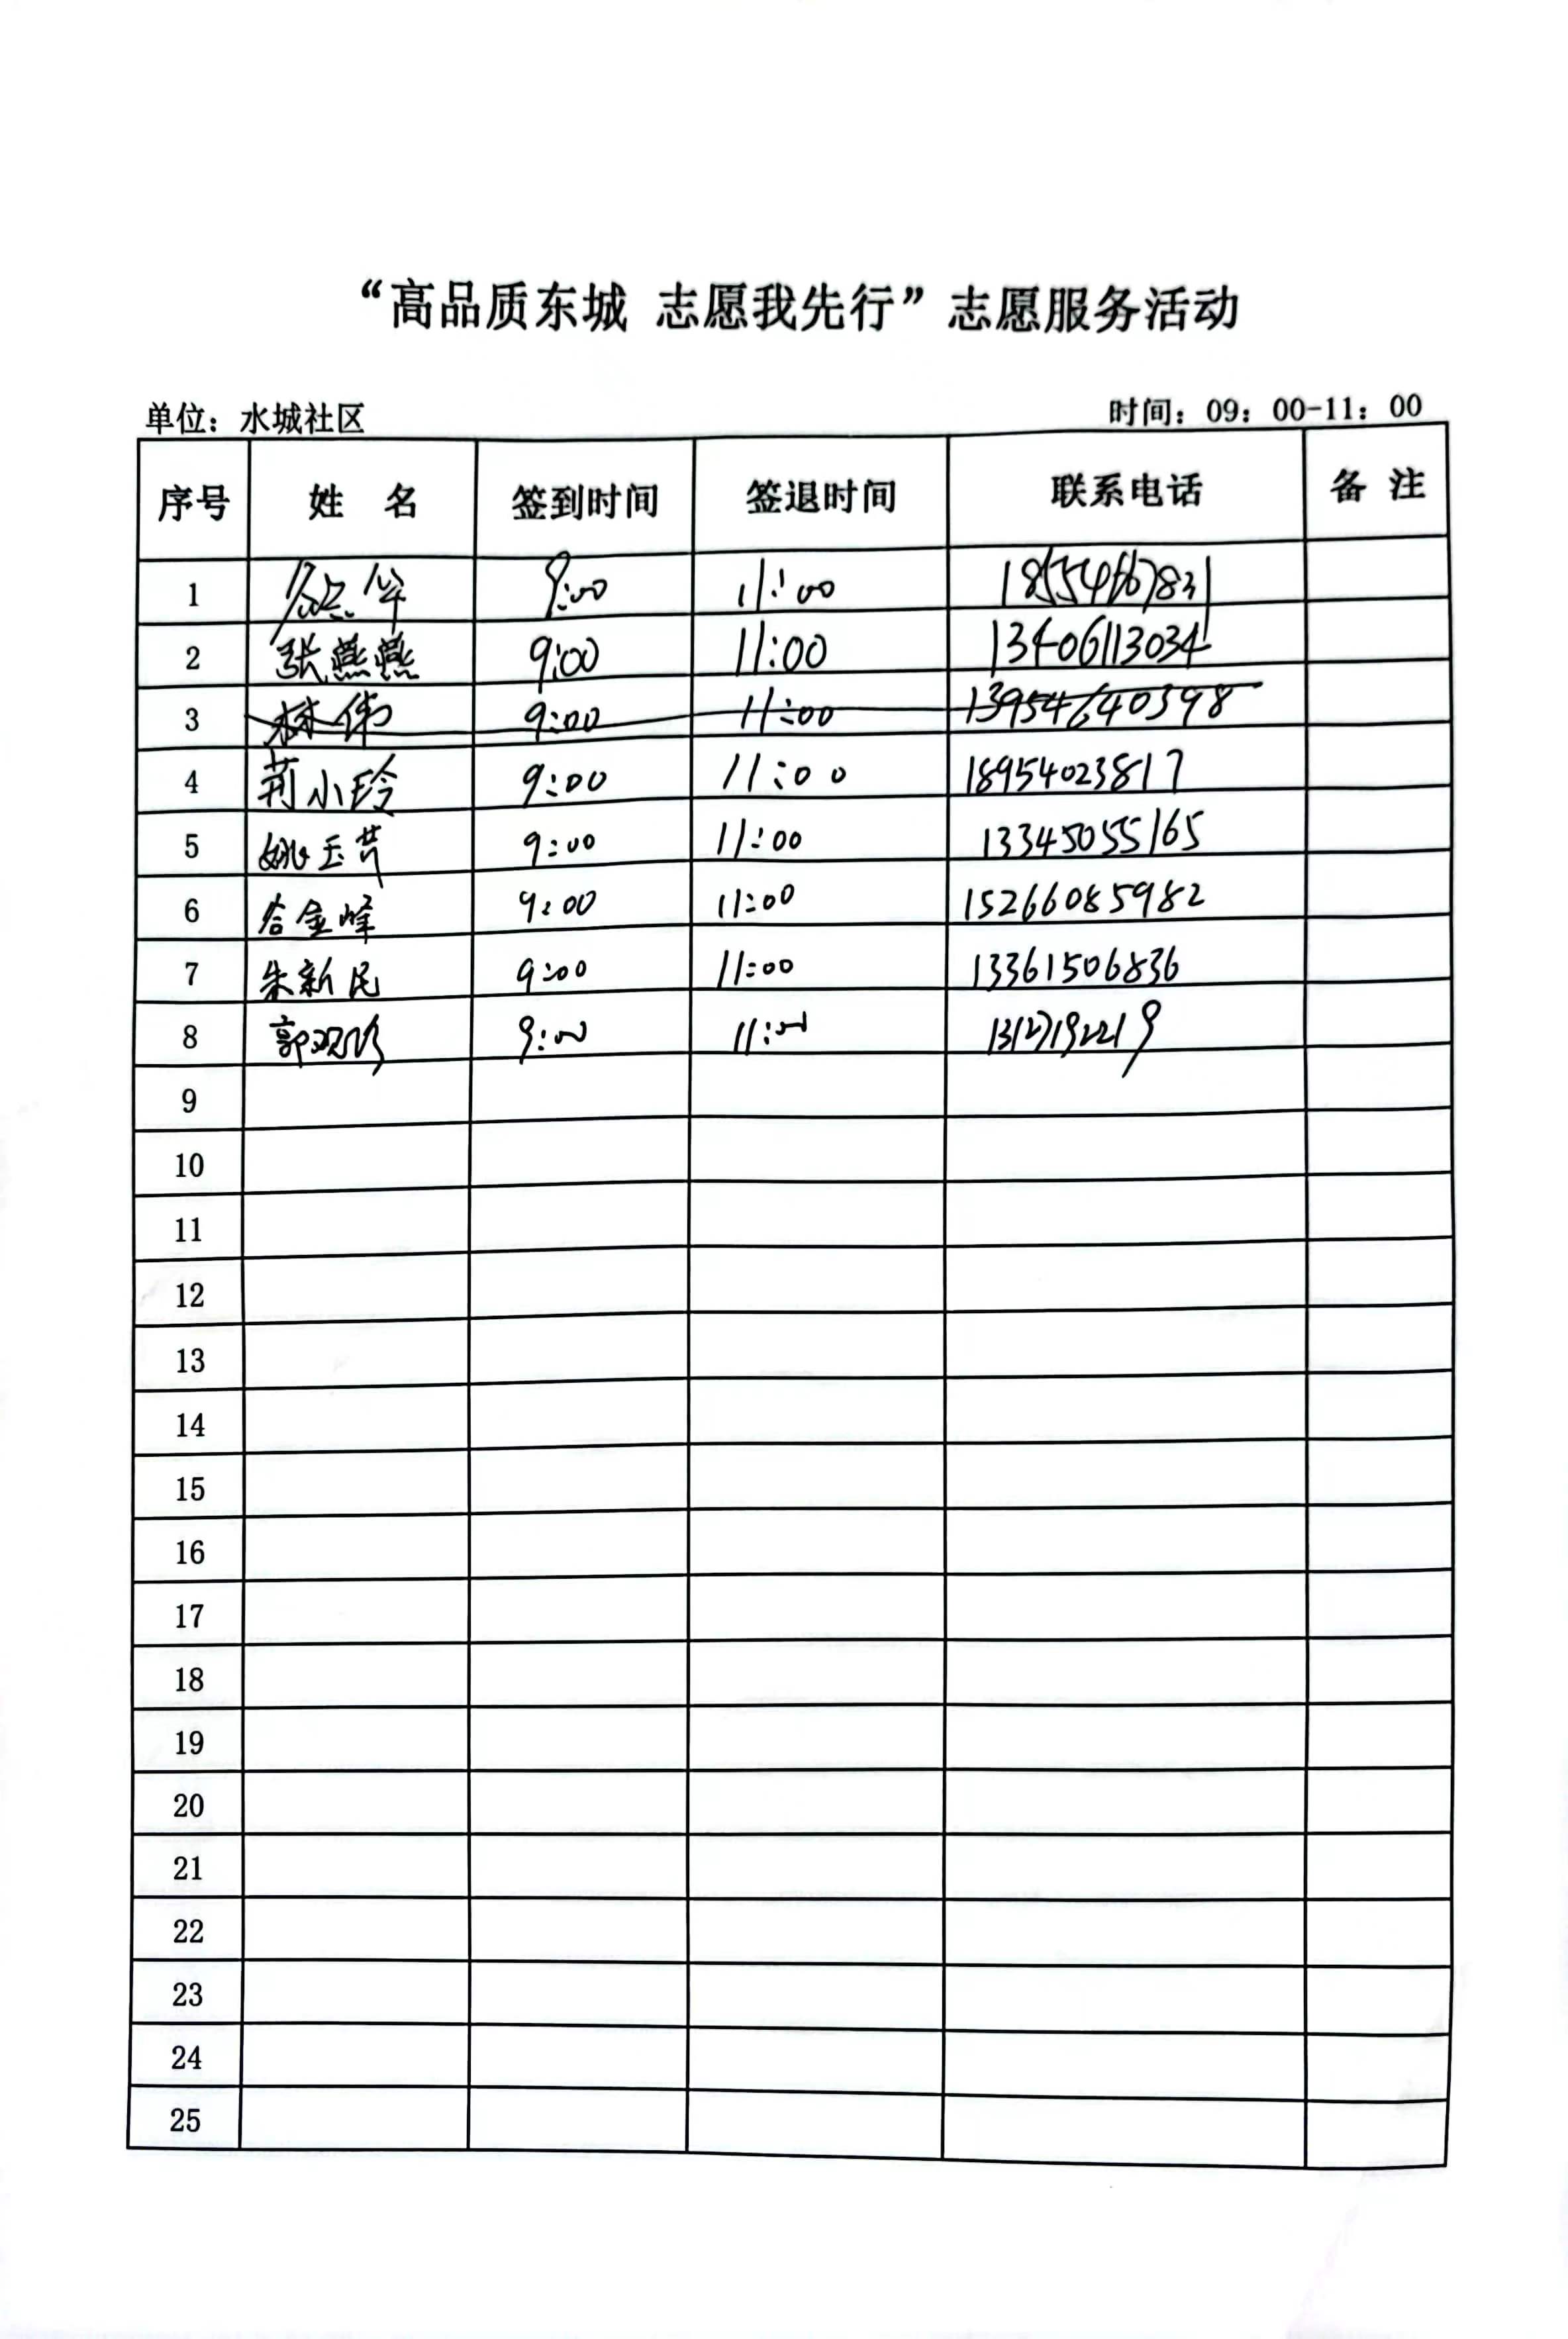 “高品质东城 志愿我先行”志愿服务活动
单位：水城社区 时间：09：00-11：00
序号 姓 名 签到时间 签退时间 联系电话 备 注
1 9:00 11:00
2 张燕燕 9:00 11:00 13406113034
3 林伟 9:00 11:00 13954640398
4 荆小玲 9:00 11:00 18954023817
5 姚玉芹 9:00 11:00 13345055165
6 谷金峰 9:00 11:00 15266085982
7 朱新民 9:00 11:00 13361506836
8 9:00 11:00
9
10
11
12
13
14
15
16
17
18
19
20
21
22
23
24
25